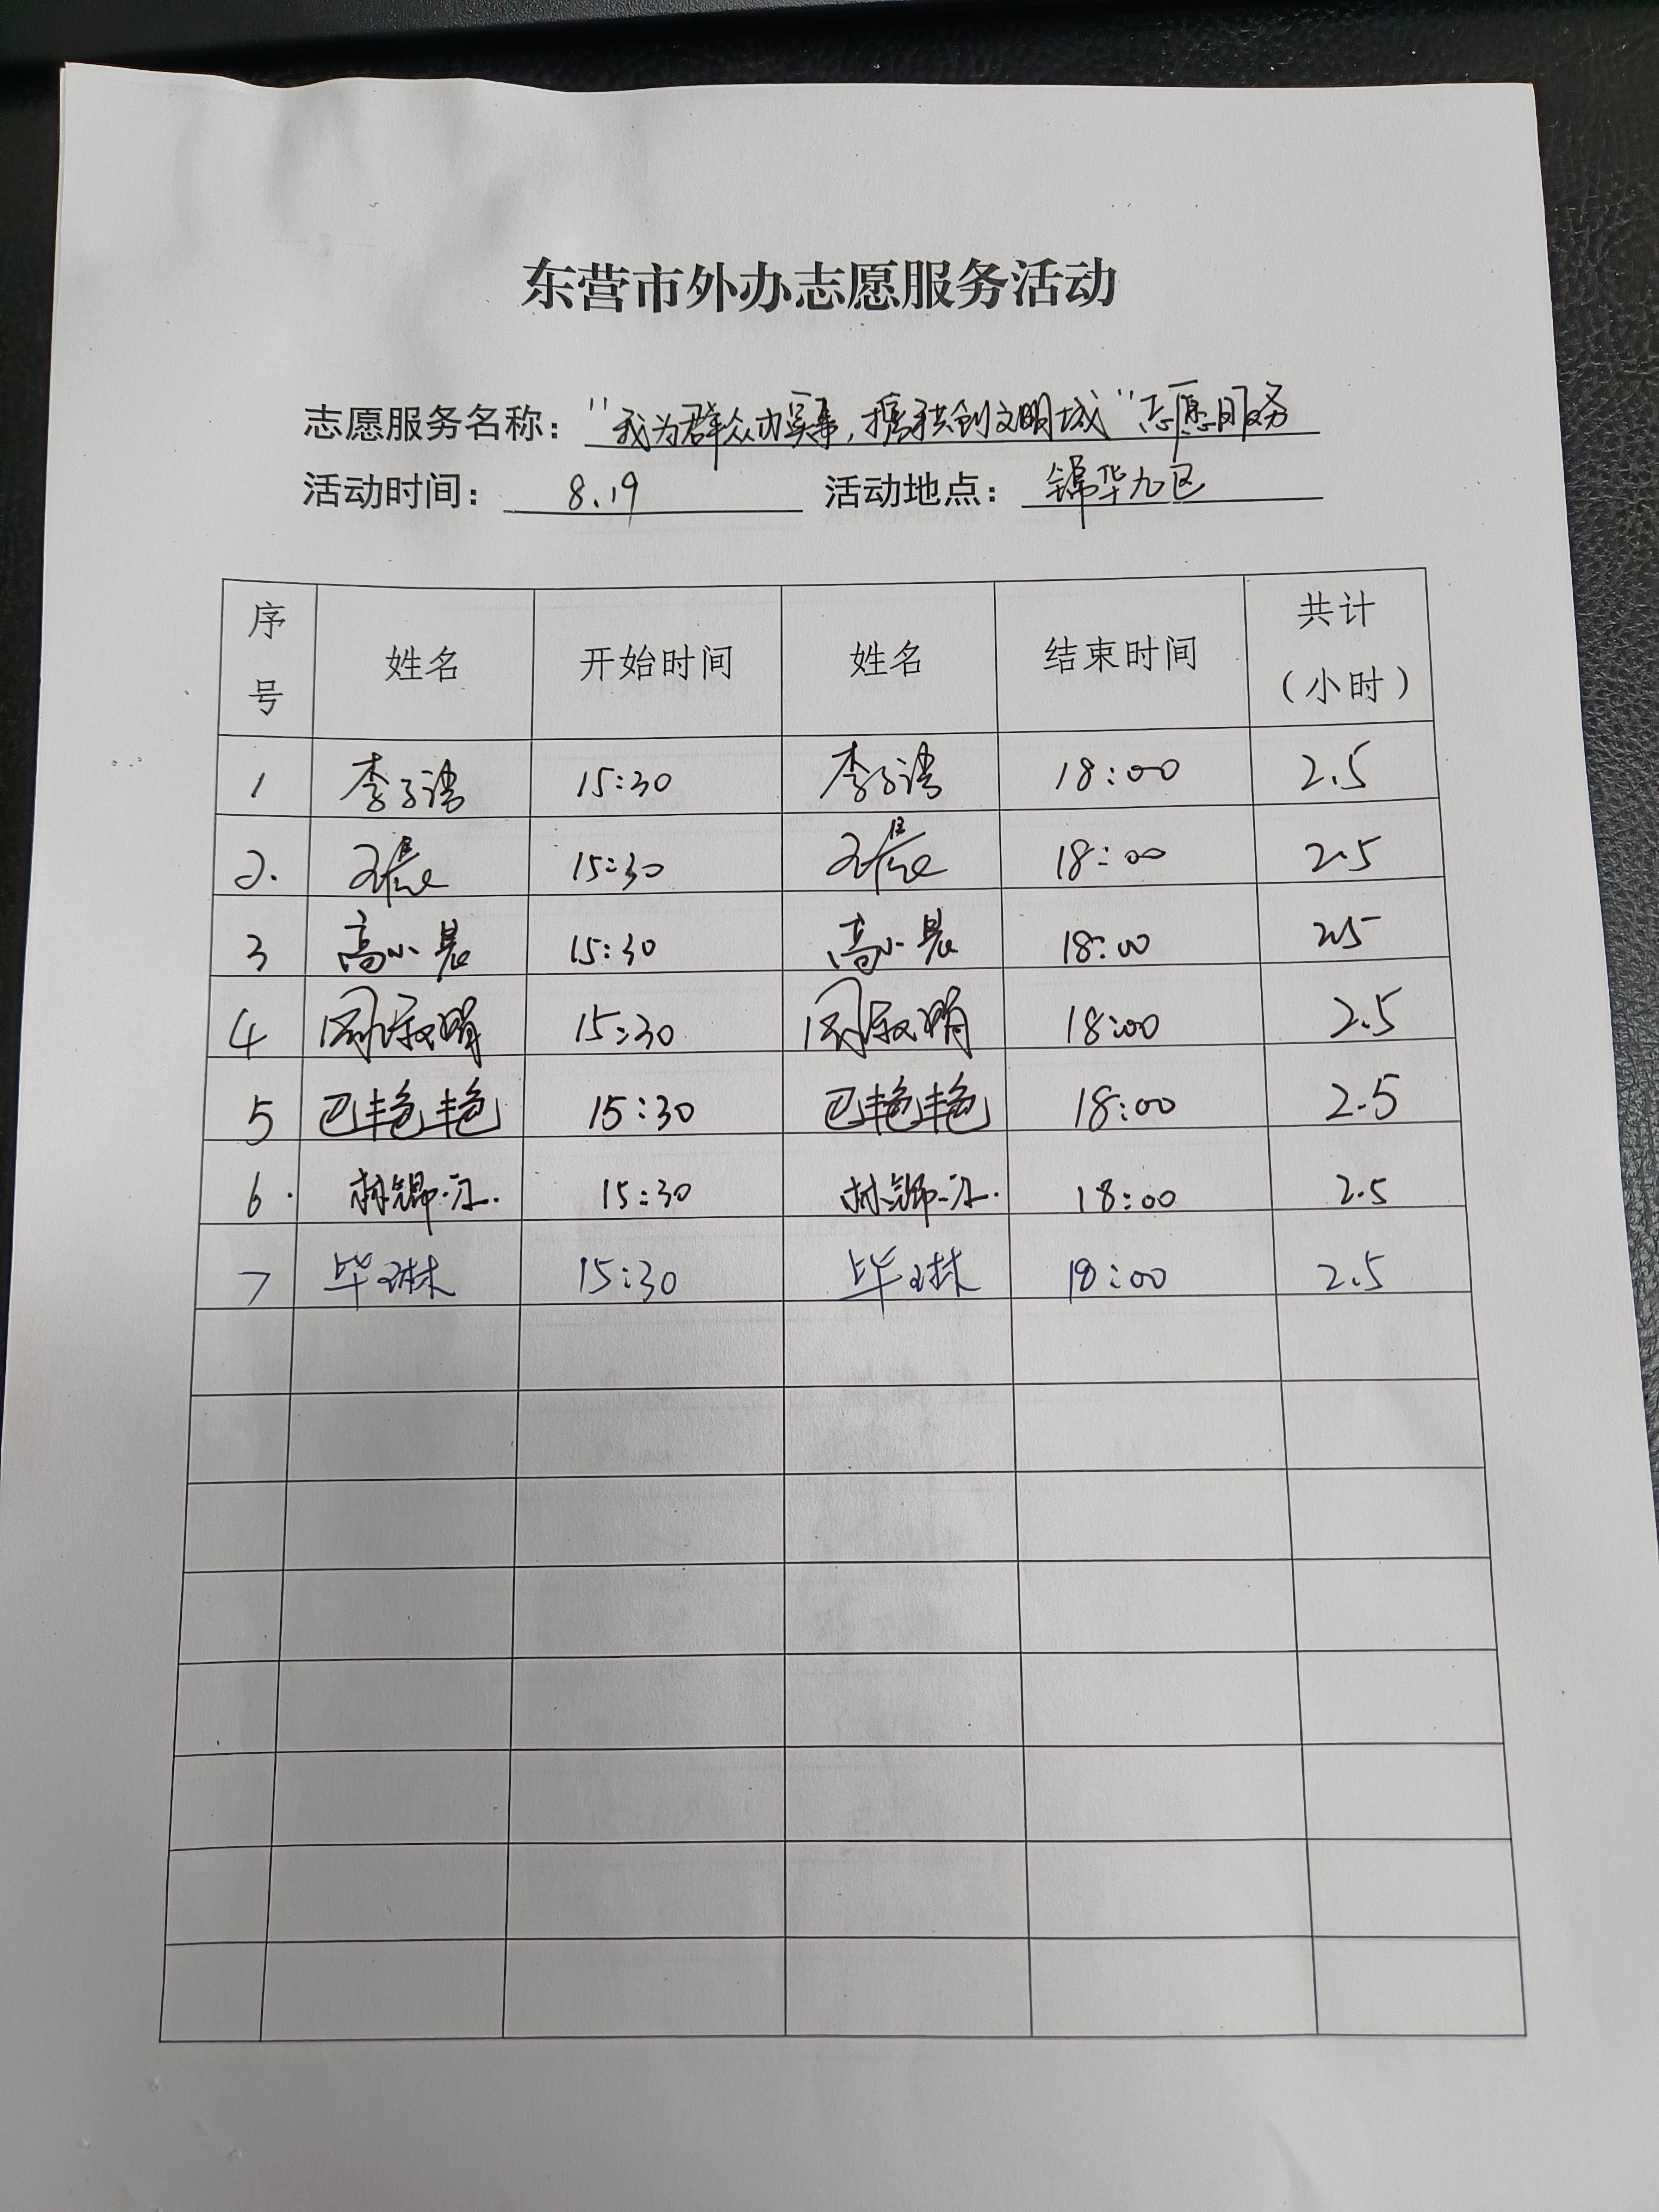 东营市外办志愿服务活动
志愿服务名称："我为群众办实事，携手共创文明城"志愿服务
活动时间：8.19 活动地点：锦华九区
序号 姓名 开始时间 姓名 结束时间 共计（小时）
1 李子 15:30 李子 18:00 2.5
2. 15:30 18:00 2.5
3 高小晨 15:30 高小晨 18:00 2.5
4 15:30 18:00 2.5
5 巴艳艳 15:30 巴艳艳 18:00 2.5
6. 林锦江. 15:30 林锦江. 18:00 2.5
7 毕琳 15:30 毕琳 18:00 2.5